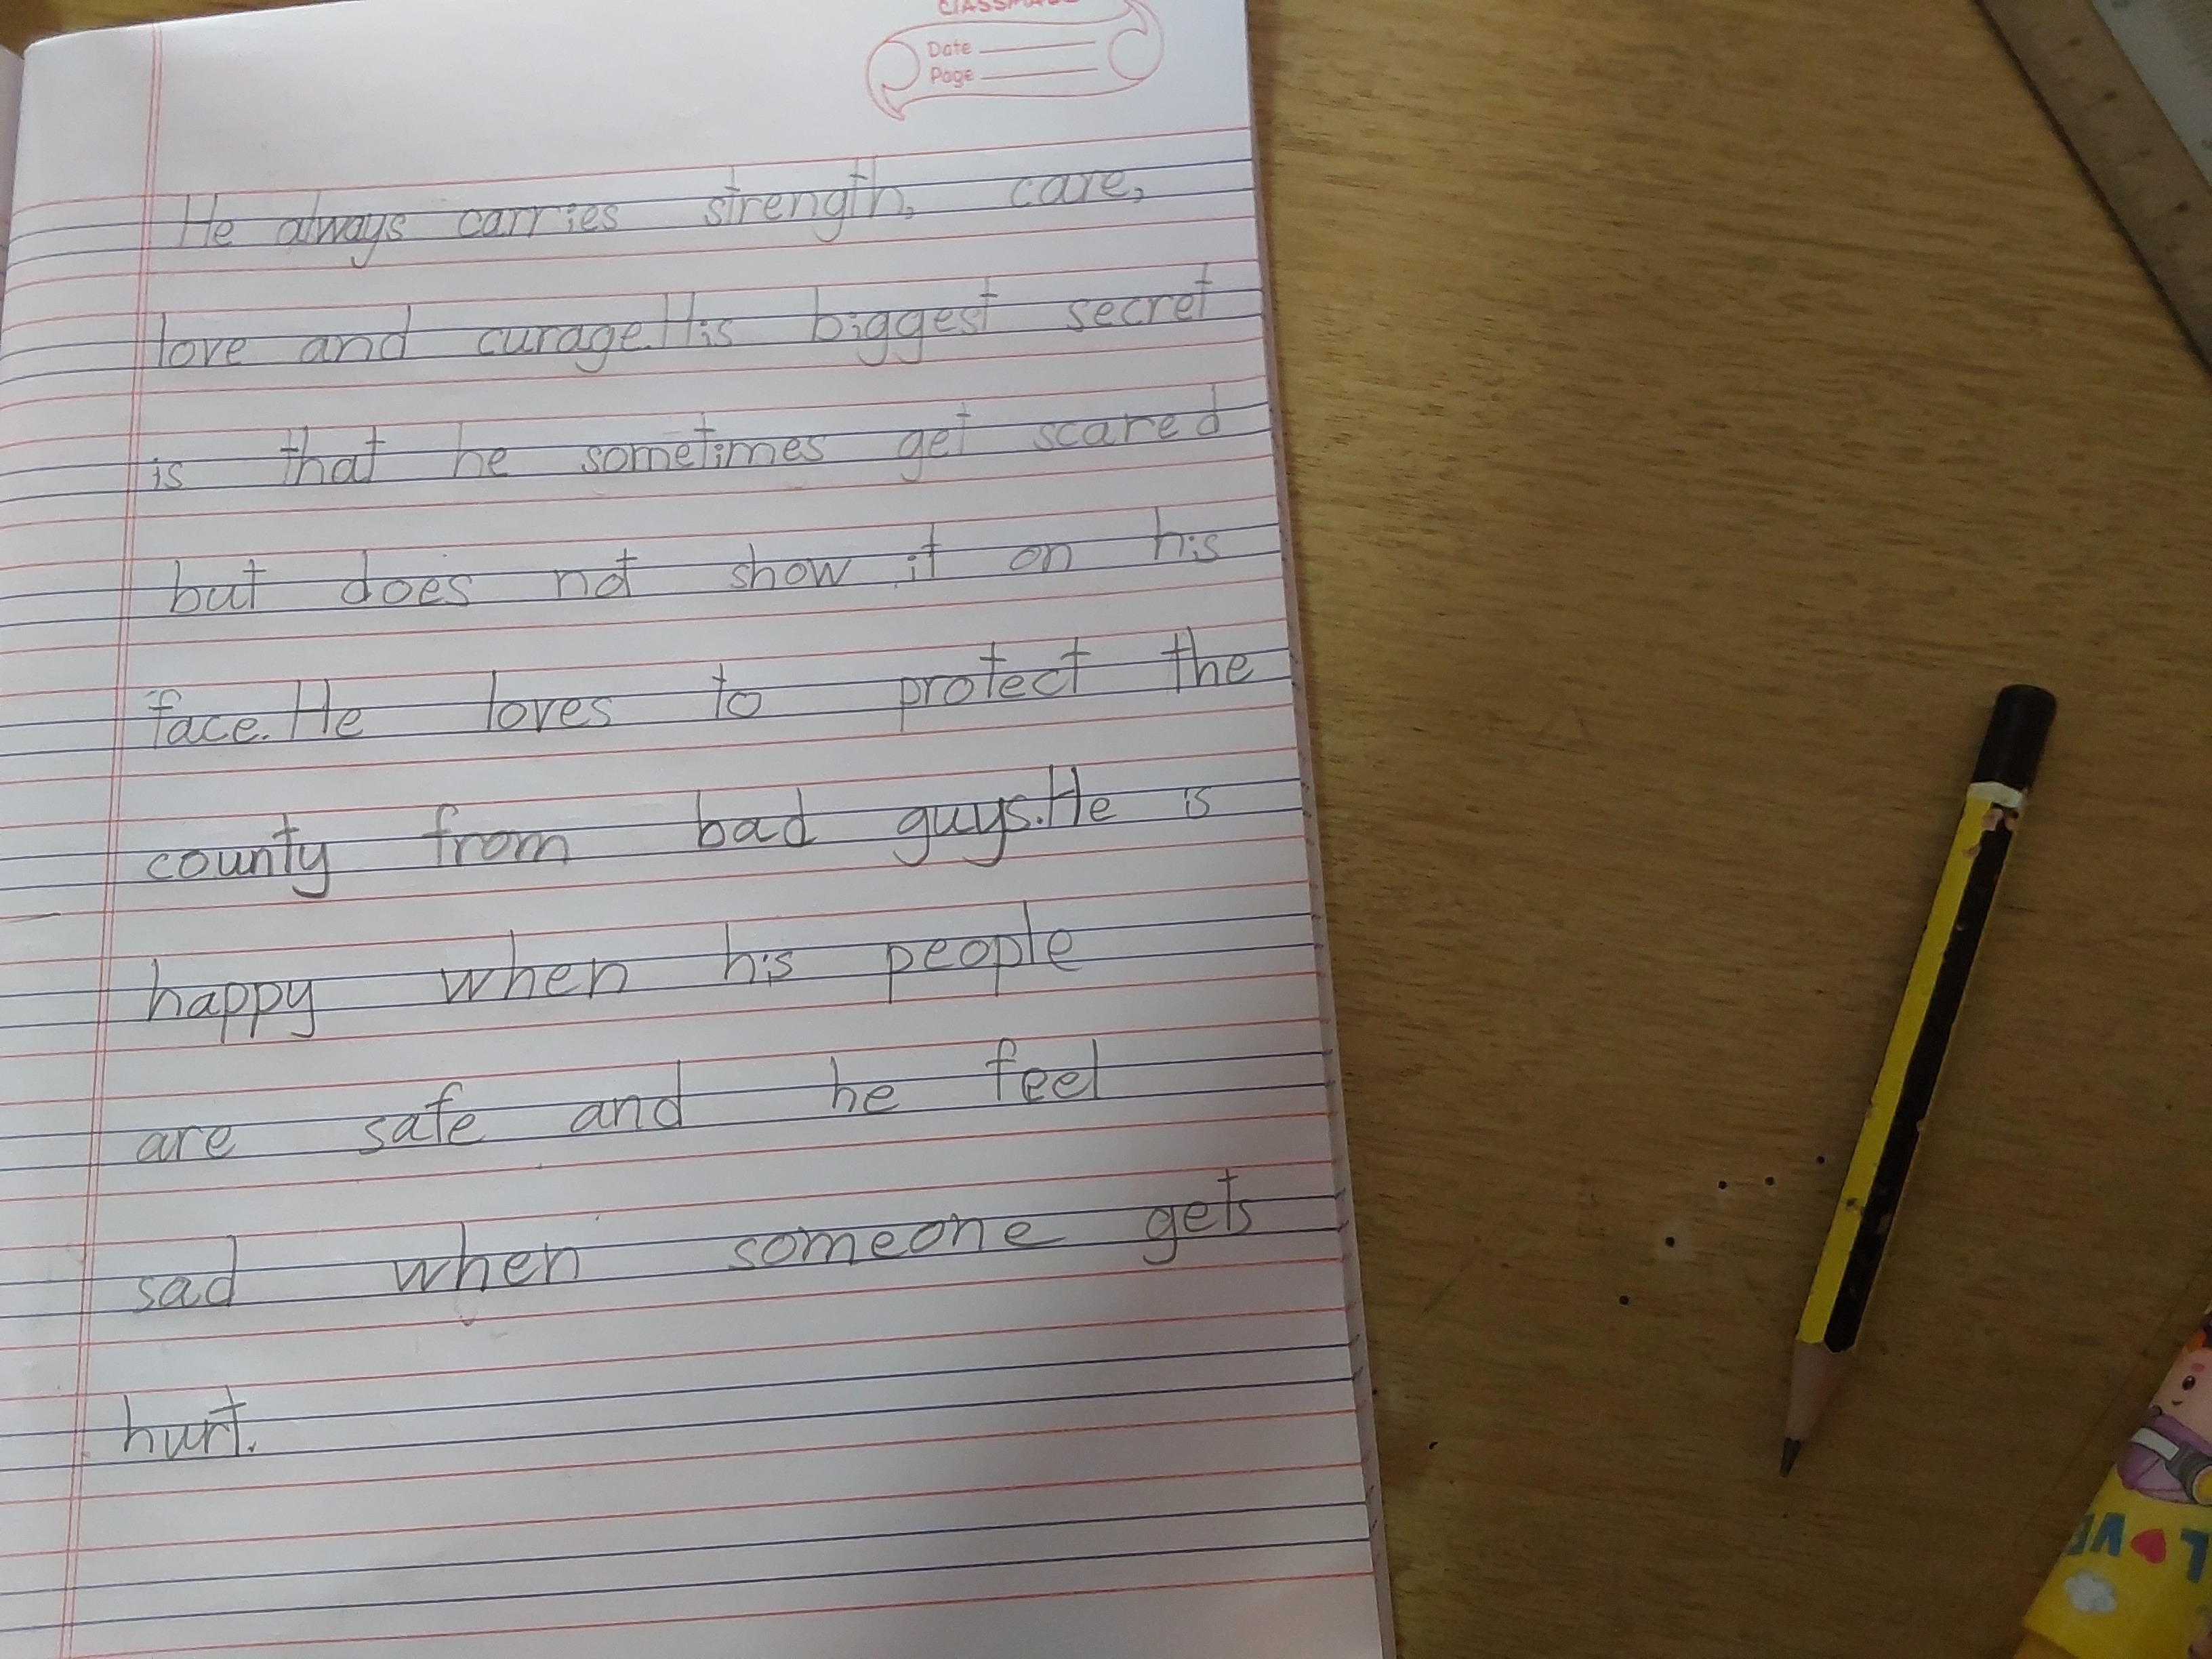 Date
Page
He always carries strength, care,
love and curage.His biggest secret
is that he sometimes get scared
but does not show it on his
face.He loves to protect the
county from bad guys.He is
happy when his people
are safe and he feel
sad when someone gets
hurt.